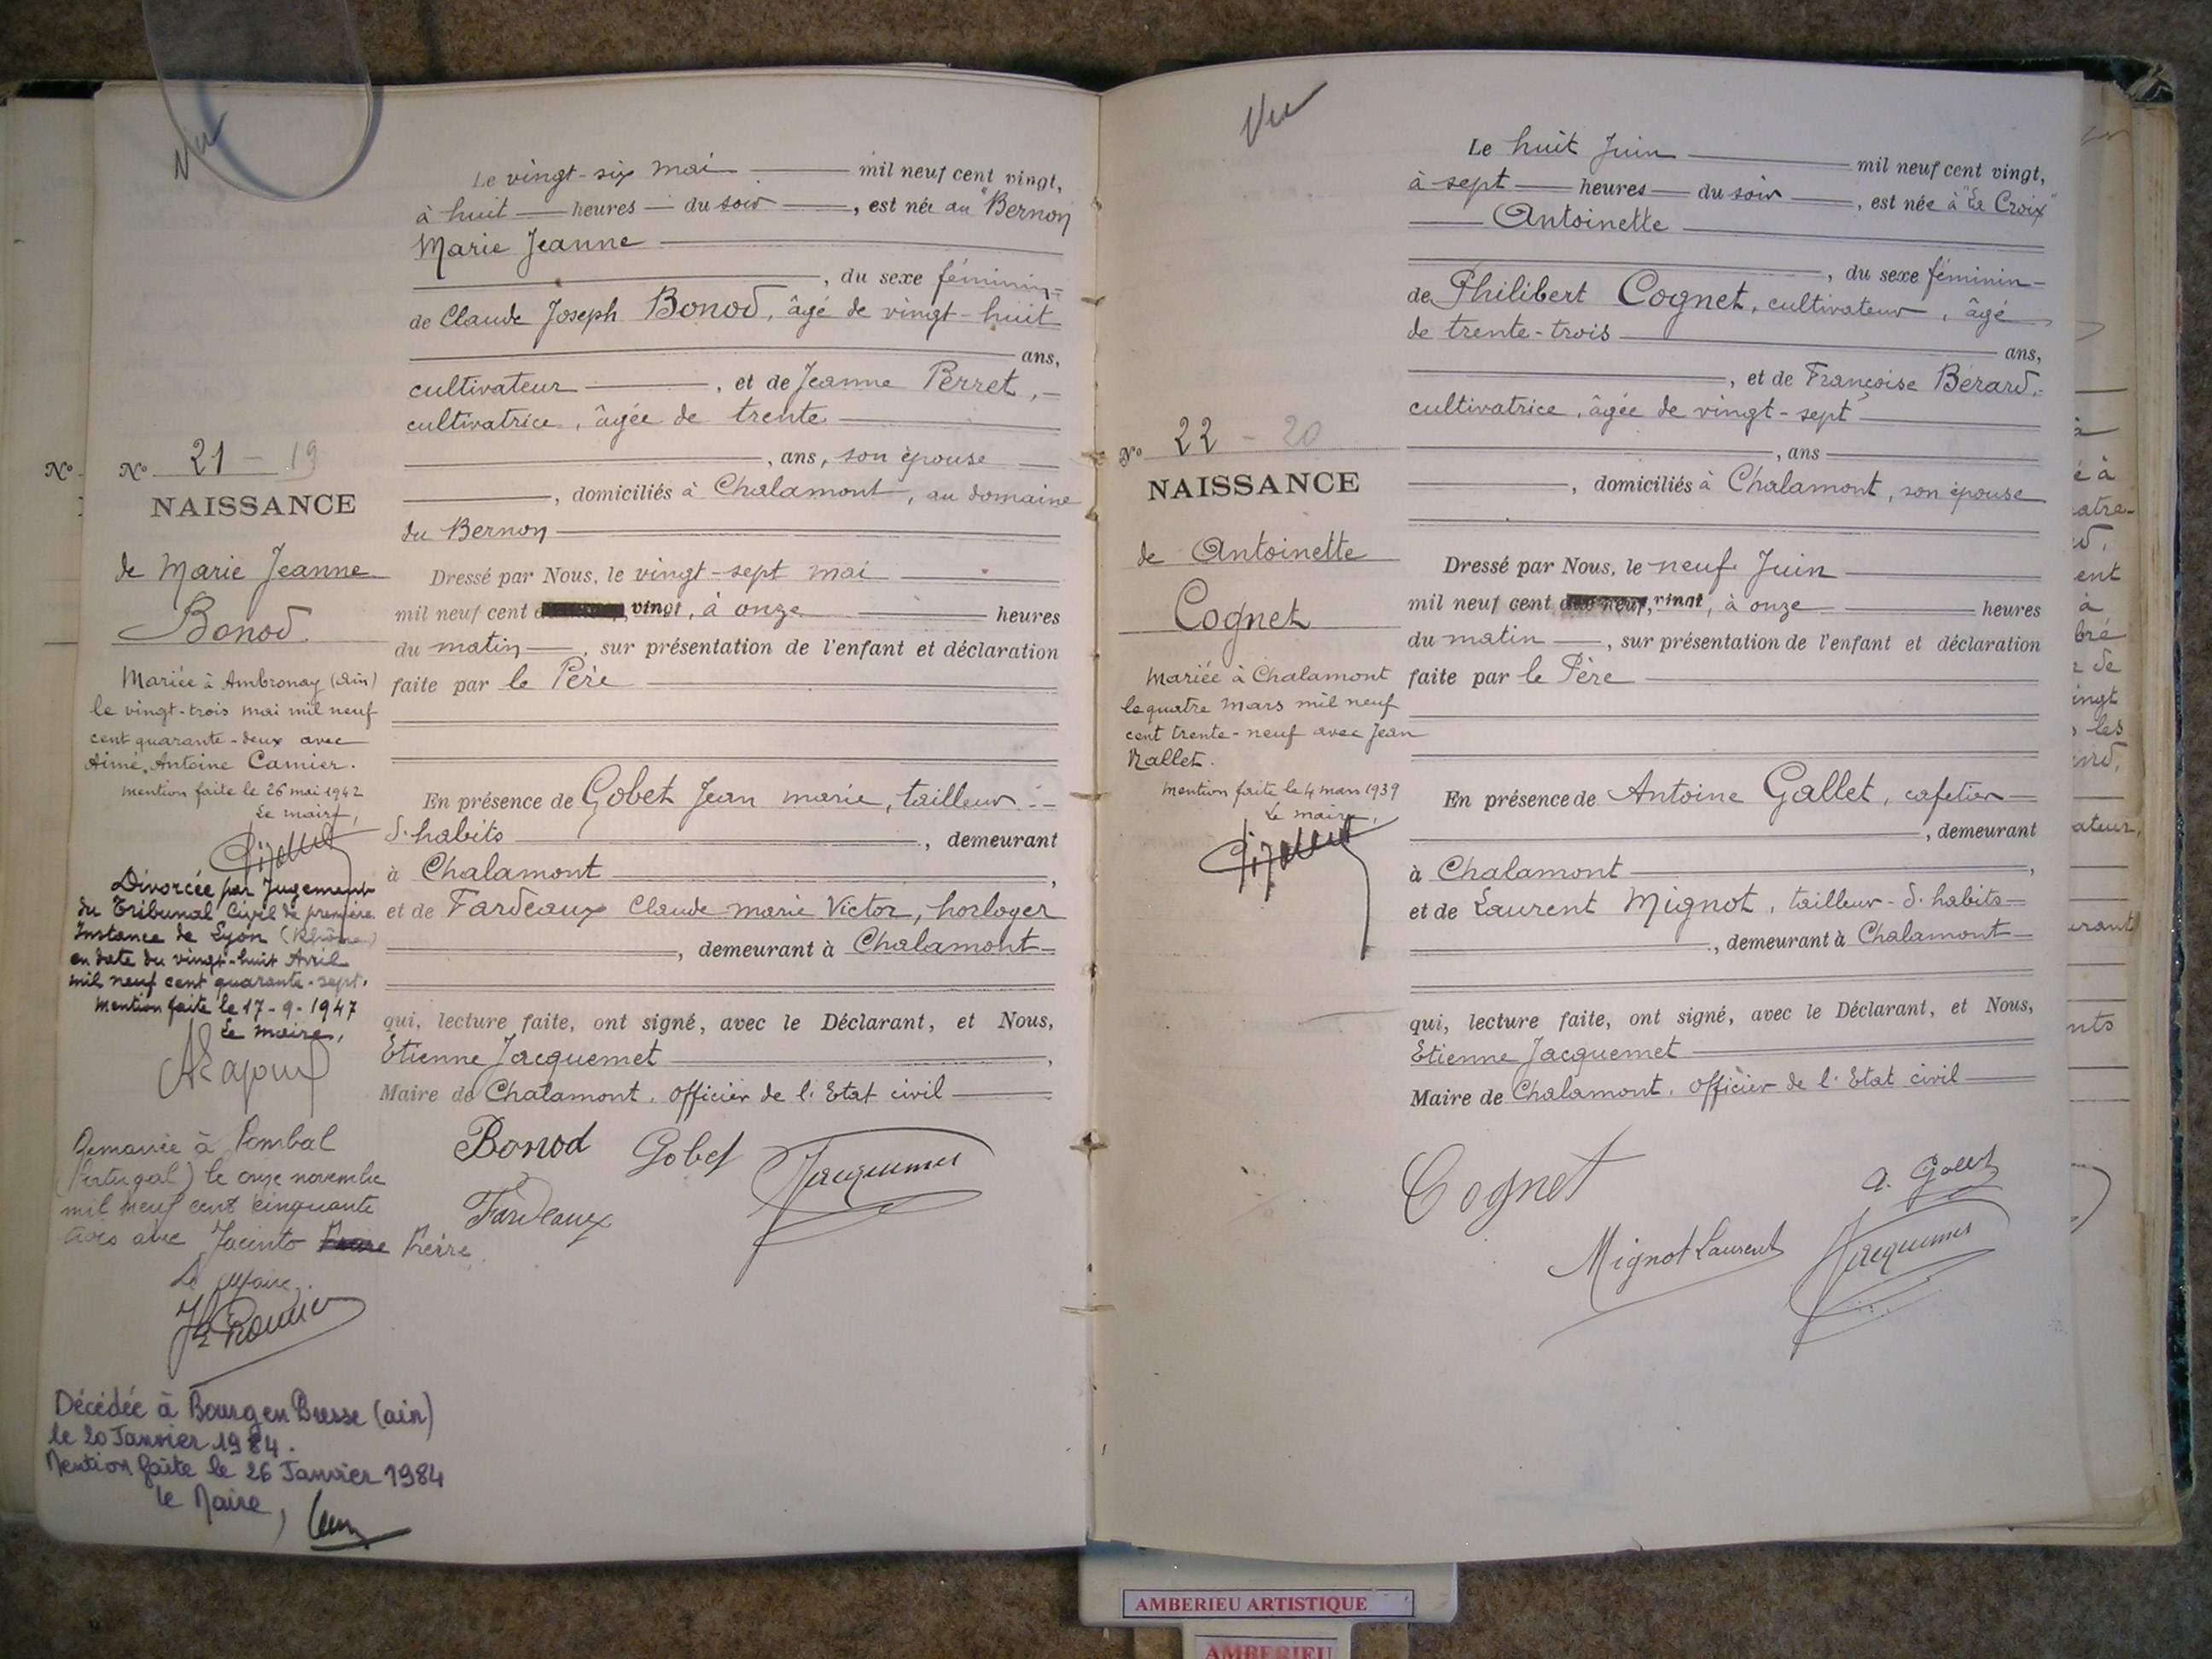 Vu
Le vingt-six mai mil neuf cent vingt,
à huit heures du soir, est née au "Bernon
Marie Jeanne
, du sexe féminin
de Claude Joseph Bonod, âgé de vingt-huit
ans,
cultivateur, et de Jeanne Perret,
cultivatrice, âgée de trente
, ans, son épouse
, domiciliés à Chalamont, au domaine
du Bernon
Dressé par Nous, le vingt-sept mai
mil neuf cent vingt, à onze heures
du matin, sur présentation de l'enfant et déclaration
faite par le Père
En présence de Gobet Jean marie, tailleur
d'habits, demeurant
à Chalamont,
et de Fardeaux Claude marie Victor, horloger
, demeurant à Chalamont
qui, lecture faite, ont signé, avec le Déclarant, et Nous,
Etienne Jacquemet,
Maire de Chalamont, officier de l'Etat civil
Bonod Gobet Jacquemet
Fardeaux
N°
N° 21 - 19
NAISSANCE
de Marie Jeanne
Bonod.
Mariée à Ambronay (Ain)
le vingt-trois mai mil neuf
cent quarante-deux avec
Aimé, Antoine Camier.
mention faite le 26 mai 1942
Le maire,
Divorcée par Jugement
du Tribunal Civil de première
Instance de Lyon (Rhône)
en date du vingt-huit Avril
mil neuf cent quarante-sept.
Mention faite le 17-9-1947
Le maire,
Remariée à Pombal
(Portugal) le onze novembre
mil neuf cent cinquante
trois avec Jacinto Freire
Le Maire.
Décédée à Bourg en Bresse (ain)
le 20 Janvier 1984.
Mention faite le 26 Janvier 1984
le Maire,
Vu
Le huit Juin mil neuf cent vingt,
à sept heures du soir, est née à "La Croix"
Antoinette
, du sexe féminin
de Philibert Cognet, cultivateur, âgé
de trente-trois
ans,
, et de Françoise Bérard,
cultivatrice, âgée de vingt-sept
, ans
, domiciliés à Chalamont, son épouse
Dressé par Nous, le neuf Juin
mil neuf cent dix-neuf, vingt, à onze heures
du matin, sur présentation de l'enfant et déclaration
faite par le Père
En présence de Antoine Gallet, cafetier
, demeurant
à Chalamont,
et de Laurent Mignot, tailleur d'habits
, demeurant à Chalamont
qui, lecture faite, ont signé, avec le Déclarant, et Nous,
Etienne Jacquemet
Maire de Chalamont, officier de l'Etat civil
Cognet A. Gallet
Mignot Laurent Jacquemet
N° 22 - 20
NAISSANCE
de Antoinette
Cognet
Mariée à Chalamont
le quatre Mars mil neuf
cent trente-neuf avec Jean
Nallet.
mention faite le 4 mars 1939
Le maire,
AMBERIEU ARTISTIQUE
AMBERIEU